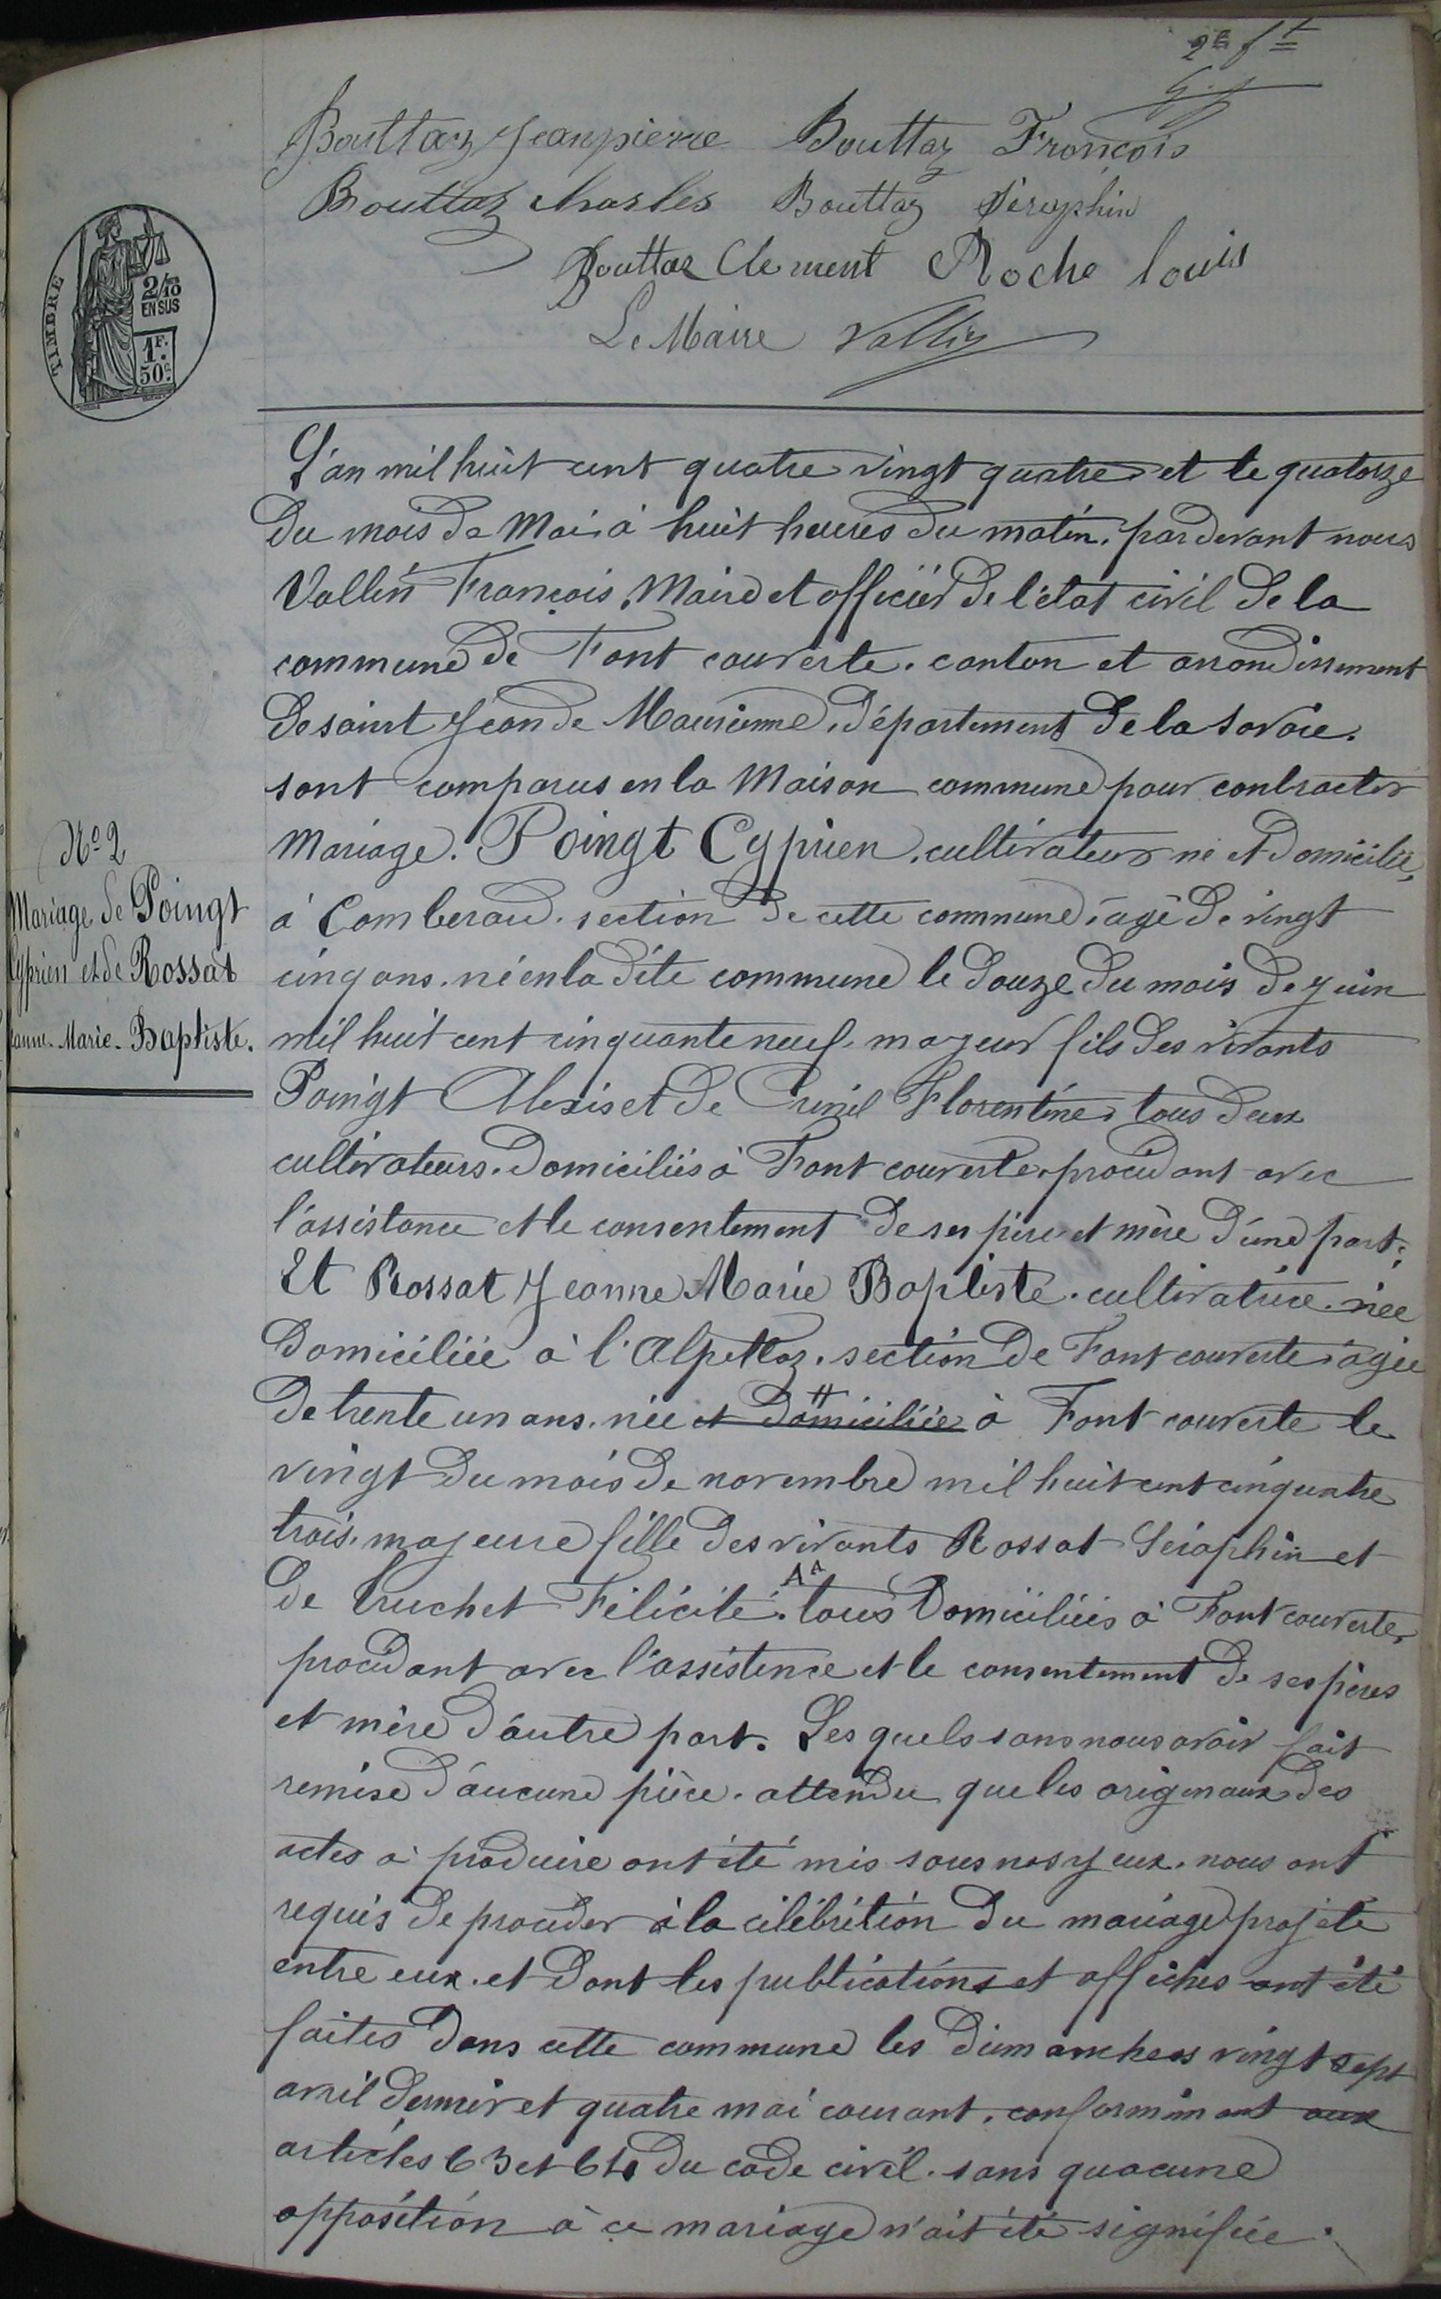 2e ft
Bouttaz Jeanpierre Bouttaz François
Bouttaz charles Bouttaz Séraphin
Bouttaz Clement Roche louis
Le Maire Vallin
TIMBRE
2/10
EN SUS
1F.
50c.
L'an mil huit cent quatre vingt quatre et le quatorze
du mois de Mai à huit heures du matin. pardevant nous
Vallin François, Maire et officier de l'état civil de la
commune de Font couverte. canton et arrondissement
de saint Jean de Maurienne, département de la Savoie.
sont comparus en la Maison commune pour contracter
Mariage. Poingt Cyprien. cultivateur né et domicilié,
à Comberard. section de cette commune, âgé de vingt
cinq ans. né en la dite commune le douze du mois de juin
mil huit cent cinquante neuf. majeur fils des vivants
Poingt Alexis et de Florentine, tous deux
cultivateurs. domiciliés à Font couverte, procédant avec
l'assistance et le consentement de ses père et mère d'une part.
Et Rossat Jeanne Marie Baptiste. cultivatrice. née
domiciliée à l'Alpettaz. section de Font couverte, âgée
de trente un ans. née et domiciliée à Font couverte le
vingt du mois de novembre mil huit cent cinquante
trois. majeure fille des vivants Rossat Séraphin et
de Truchet Félicité. tous domiciliés à Font couverte,
procédant avec l'assistence et le consentement de ses pères
et mère d'autre part. Les quels sans nous avoir fait
remise d'aucune pièce. attendu que les originaux des
actes à produire ont été mis sous nos yeux. nous ont
requis de procéder à la célébrétion du mariage projeté
entre eux. et dont les publications et affiches ont été
faites dans cette commune les dimanches vingt sept
avril dernier et quatre mai courant. conformément aux
articles 63 et 64 du code civil. sans quacune
opposition à ce mariage n'ait été signifiée.
No 2
Mariage de Poingt
Cyprien et de Rossat
Jeanne-Marie-Baptiste.